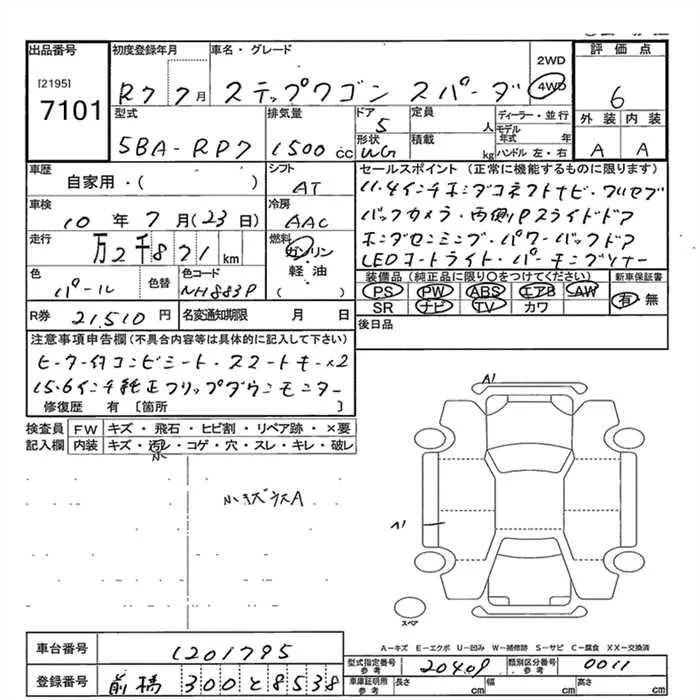 出品番号 初度登録年月 車名・グレード 評価点
[2195]
7101
R7 7月 ステップワゴン スパーダ 2WD 4WD 6
型式 排気量 ドア 定員 ディーラー・並行 外装 内装
5BA-RP7 1500cc 5 人 モデル年式 年
形状 積載 ハンドル 左・右
WG kg A A
車歴 シフト セールスポイント (正常に機能するものに限ります)
自家用・( ) AT 11.4インチホンダコネクトナビ・フルセグ
車検 冷房
10年7月(23日) AAC バックカメラ・両側Pスライドドア
走行 燃料
万2千871km ガソリン ホンダセンシング・パワーバックドア
軽油 LEDヘッドライト・パーキングソナー
色 色替 色コード ( ) 装備品 (純正品に限り○をつけてください) 新車保証書
パール NH883P PS PW ABS エアB AW 有 無
SR ナビ TV カワ
R券 21,510円 名変通知期限 月 日 後日品
注意事項申告欄 (不具合内容等は具体的に記入して下さい)
ヒーター付コンビシート・スマートキー×2
15.6インチ純正フリップダウンモニター
修復歴 有 [箇所 ]
検査員 FW キズ・飛石・ヒビ割・リペア跡・×要
記入欄 内装 キズ・汚レ・コゲ・穴・スレ・キレ・破レ
小
A1
小キズウスA
A1
スペア
A-キズ E-エクボ U-凹み W-補修跡 S-サビ C-腐食 XX-交換済
車台番号 1201795
型式指定番号 参考 20409 類別区分番号 参考 0011
登録番号 前橋 300 と 8538
車庫証明用 参考 長さ cm 幅 cm 高さ cm